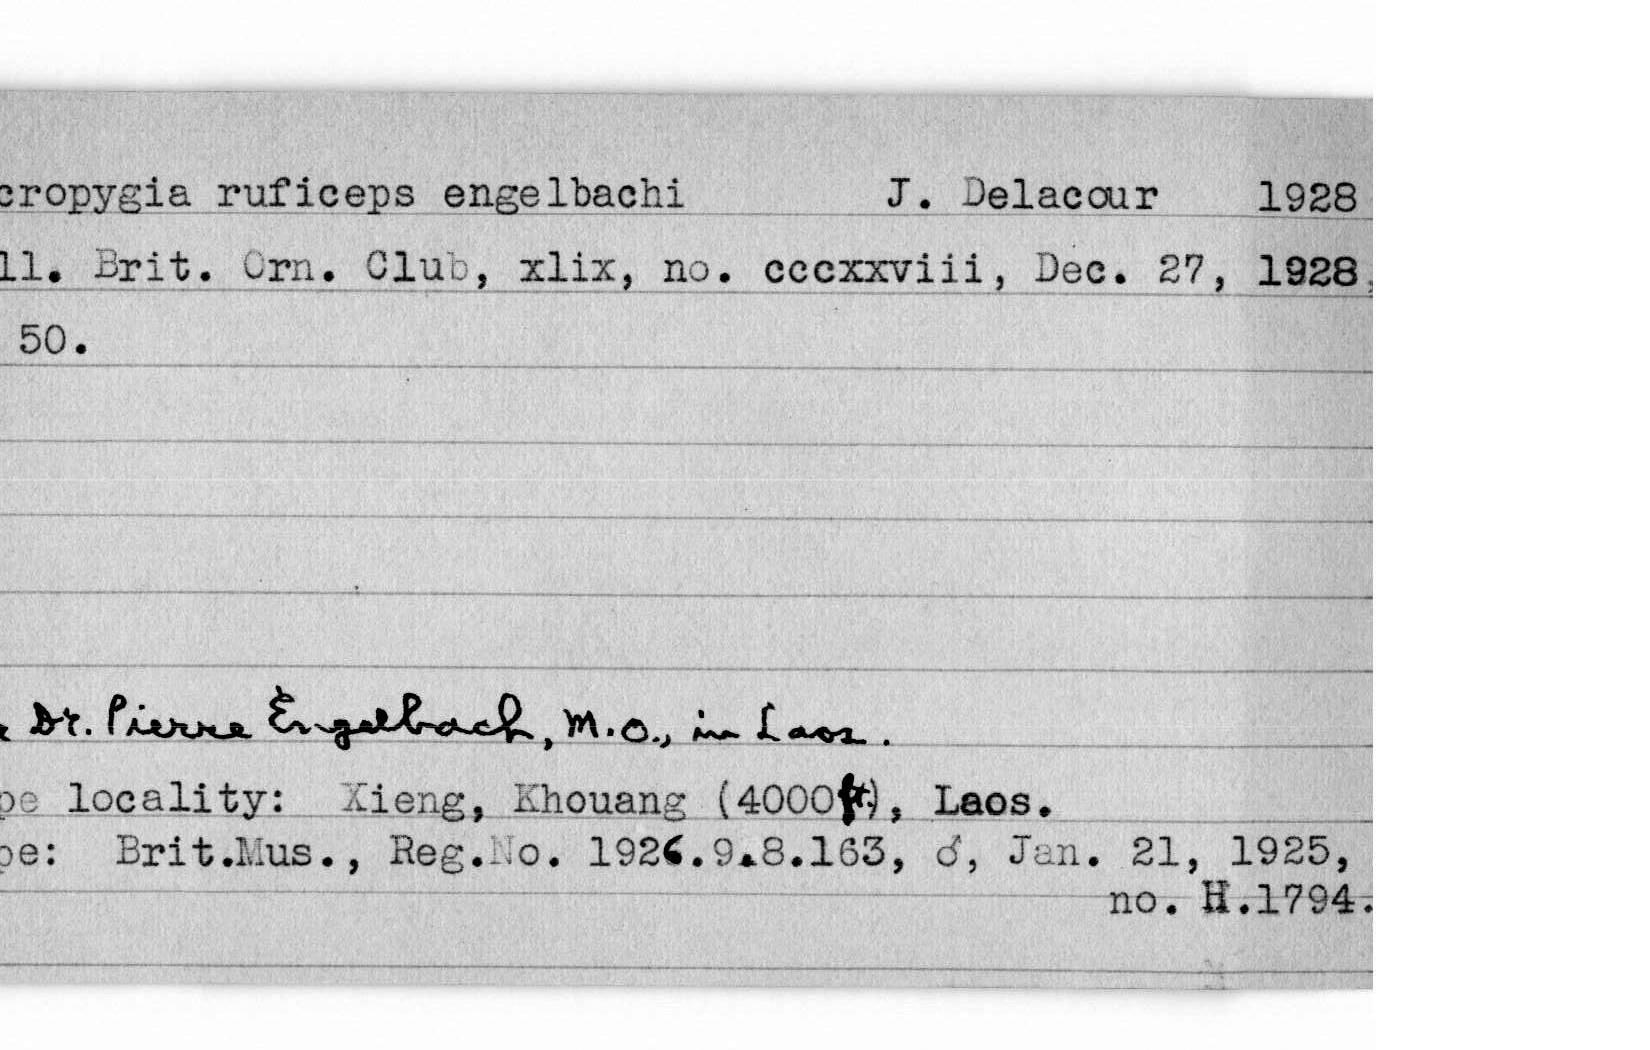 cropygia ruficeps engelbachi J. Delacour 1928
ll. Brit. Orn. Club, xlix, no. cccxxviii, Dec. 27, 1928,
50.
Dr. Pierre Engelbach, M.O., in Laos.
pe locality: Xieng, Khouang (4000ft.), Laos.
pe: Brit.Mus., Reg.No. 1926.9.8.163, ♂, Jan. 21, 1925,
no. H.1794.